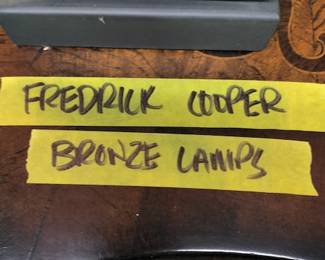 FREDRICK COOPER
BRONZE LAMPS